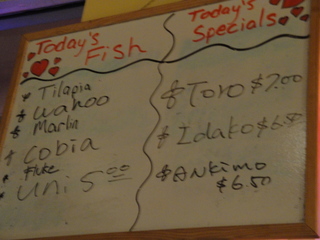 Today's Fish
Tilapia
Wahoo
Marlin
Cobia
Fluke
Uni 5.00
Today's
Specials
Toro $7.00
Idako $6.50
Ankimo
$6.50